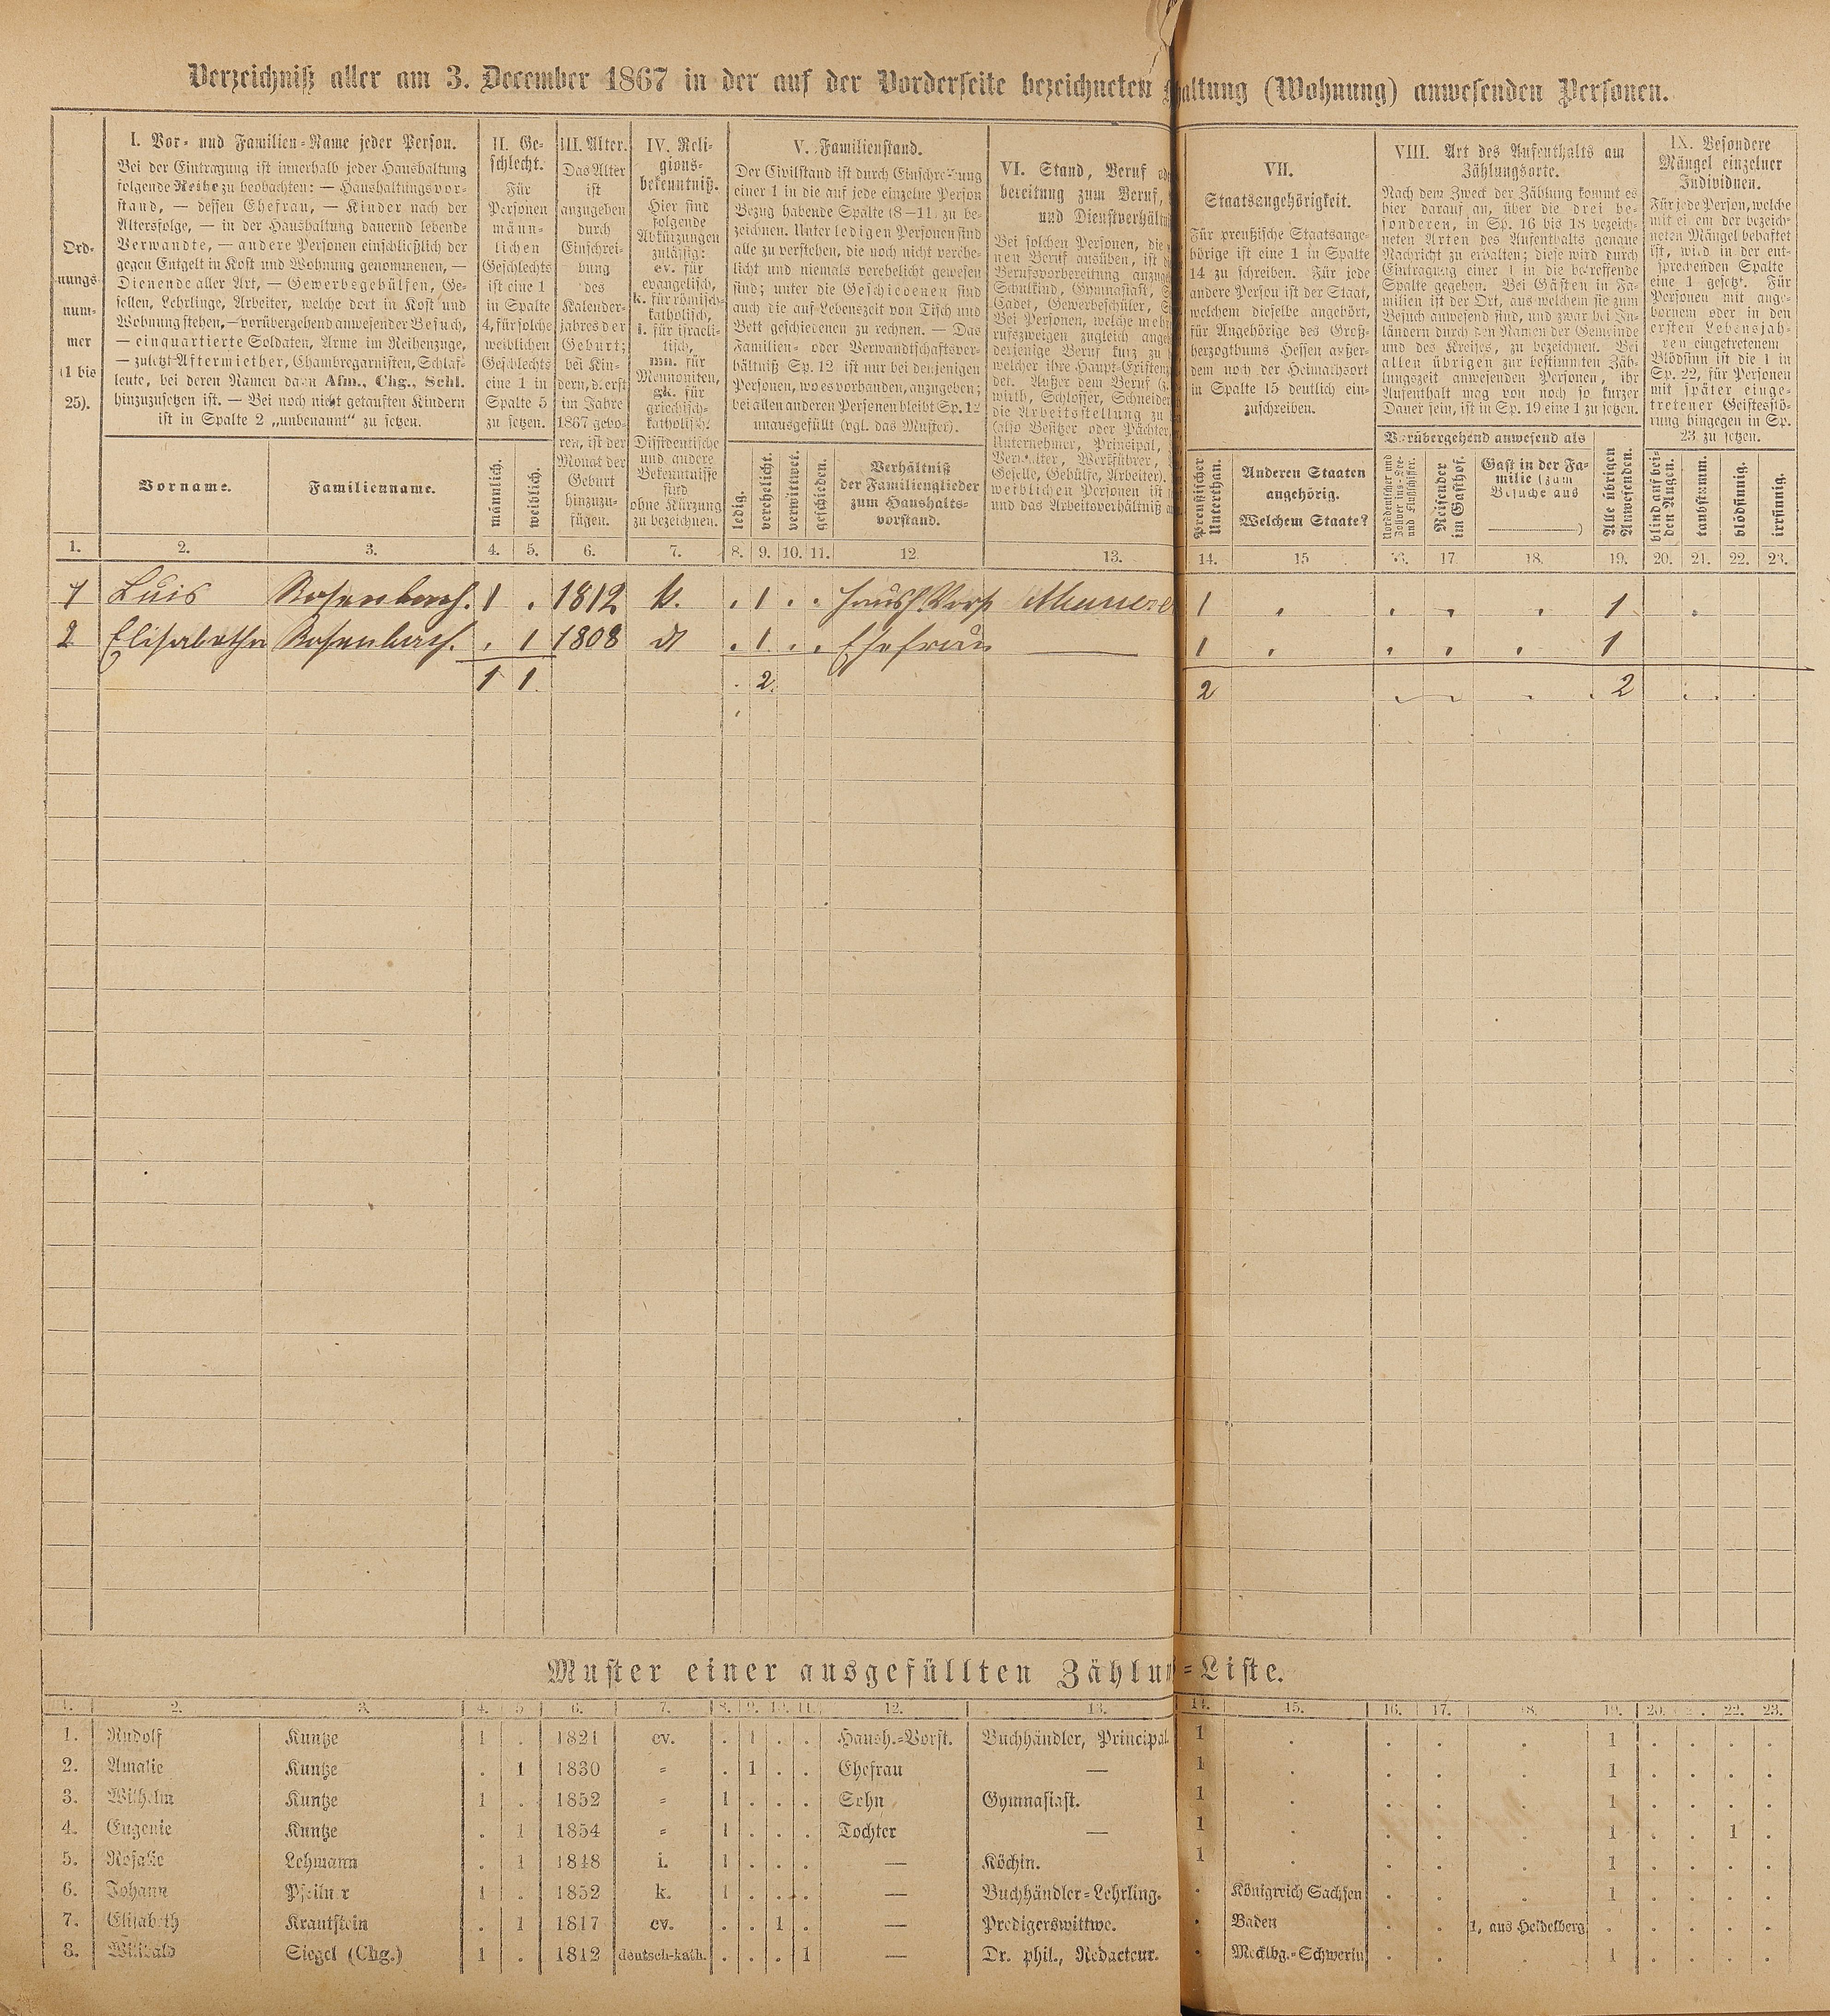 Verzeichniß aller am 3. December 1867 in der auf der Vorderseite bezeichneten haltung (Wohnung) anwesenden Personen.
Ord-
nungs-
num-
mer
(1 bis
25).
I. Vor- und Familien-Name jeder Person.
Bei der Eintragung ist innerhalb jeder Haushaltung
folgende Reihe zu beobachten: — Haushaltungsvor-
stand, — dessen Ehefrau, — Kinder nach der
Altersfolge, — in der Haushaltung dauernd lebende
Verwandte, — andere Personen einschließlich der
gegen Entgelt in Kost und Wohnung genommenen, —
Dienende aller Art, — Gewerbegehülfen, Ge-
sellen, Lehrlinge, Arbeiter, welche dort in Kost und
Wohnung stehen, — vorübergehend anwesender Besuch,
— einquartierte Soldaten, Arme im Reihenzuge,
— zuletzt Aftermiether, Chambregarnisten, Schlaf-
leute, bei deren Namen dann Afm., Chg., Schl.
hinzuzusetzen ist. — Bei noch nicht getauften Kindern
ist in Spalte 2 „unbenannt“ zu setzen.
Vorname.
Familienname.
II. Ge-
schlecht.
Für
Personen
männ-
lichen
Geschlechts
ist eine 1
in Spalte
4, für solche
weiblichen
Geschlechts
eine 1 in
Spalte 5
zu setzen.
männlich.
weiblich.
III. Alter.
Das Alter
ist
anzugeben
durch
Einschrei-
bung
des
Kalender-
jahres der
Geburt;
bei Kin-
dern, d. erst
im Jahre
1867 gebo-
ren, ist der
Monat der
Geburt
hinzuzu-
fügen.
IV. Reli-
gions-
bekenntniß.
Hier sind
folgende
Abkürzungen
zulässig:
ev. für
evangelisch,
k. für römisch-
katholisch,
i. für israeli-
tisch,
mn. für
Mennoniten,
gk. für
griechisch-
katholisch.
Dissidentische
und andere
Bekenntnisse
sind
ohne Kürzung
zu bezeichnen.
V. Familienstand.
Der Civilstand ist durch Einschreibung
einer 1 in die auf jede einzelne Person
Bezug habende Spalte (8—11) zu be-
zeichnen. Unter ledigen Personen sind
alle zu verstehen, die noch nicht verehe-
licht und niemals verehelicht gewesen
sind; unter die Geschiedenen sind
auch die auf Lebenszeit von Tisch und
Bett geschiedenen zu rechnen. — Das
Familien- oder Verwandtschaftsver-
hältniß Sp. 12 ist nur bei denjenigen
Personen, wo es vorhanden, anzugeben;
bei allen anderen Personen bleibt Sp. 12
unausgefüllt (vgl. das Muster).
ledig.
verehelicht.
verwittwet.
geschieden.
Verhältniß
der Familienglieder
zum Haushalts-
vorstand.
VI. Stand, Beruf od
bereitung zum Beruf,
und Dienstverhältn
Bei solchen Personen, die
nen Beruf ausüben, ist d
Berufsvorbereitung anzuge
Schulkind, Gymnasiast, S
Cadet, Gewerbeschüler,
Bei Personen, welche mehr
rufszweigen zugleich ange
derjenige Beruf kurz zu
welcher ihre Haupt-Existenz
det. Außer dem Beruf (z.
wirth, Schlosser, Schneider
die Arbeitsstellung zu
(also Besitzer oder Pächter,
Unternehmer, Principal,
Verwalter, Werkführer,
Geselle, Gehülfe, Arbeiter).
weiblichen Personen ist
und das Arbeitsverhältniß
VII.
Staatsangehörigkeit.
Für preußische Staatsange-
hörige ist eine 1 in Spalte
14 zu schreiben. Für jede
andere Person ist der Staat,
welchem dieselbe angehört,
für Angehörige des Groß-
herzogthums Hessen außer-
dem noch der Heimathsort
in Spalte 15 deutlich ein-
zuschreiben.
Preußischer
Unterthan.
Anderen Staaten
angehörig.
Welchem Staate?
VIII. Art des Aufenthalts am
Zählungsorte.
Nach dem Zweck der Zählung kommt es
hier darauf an, über die drei be-
sonderen, in Sp. 16 bis 18 bezeich-
neten Arten des Aufenthalts genaue
Nachricht zu erhalten; diese wird durch
Eintragung einer 1 in die betreffende
Spalte gegeben. Bei Gästen in Fa-
milien ist der Ort, aus welchem sie zum
Besuch anwesend sind, und zwar bei In-
ländern durch den Namen der Gemeinde
und des Kreises, zu bezeichnen. Bei
allen übrigen zur bestimmten Zäh-
lungszeit anwesenden Personen, ihr
Aufenthalt mag von noch so kurzer
Dauer sein, ist in Sp. 19 eine 1 zu setzen.
Vorübergehend anwesend als
Norddeutscher und
Zollver.ins-See-
und Flußschiffer.
Reisender
im Gasthof.
Gast in der Fa-
milie (zum
Besuche aus
)
Alle übrigen
Anwesenden.
IX. Besondere
Mängel einzelner
Individuen.
Für jede Person, welche
mit einem der bezeich-
neten Mängel behaftet
ist, wird in der ent-
sprechenden Spalte
eine 1 gesetzt. Für
Personen mit ange-
bornem oder in den
ersten Lebensjah-
ren eingetretenem
Blödsinn ist die 1 in
Sp. 22, für Personen
mit später einge-
tretener Geistesstö-
rung hingegen in Sp.
23 zu setzen.
blind auf bei-
den Augen.
taubstumm.
blödsinnig.
irrsinnig.
1. 2. 3. 4. 5. 6. 7. 8. 9. 10. 11. 12. 13. 14. 15. 16. 17. 18. 19. 20. 21. 22. 23.
1 Luis Rosenbach. 1 . 1812 k. . 1 . . Haush. Vorst Maurer 1 . . . . 1 .
2 Elisabetha Rosenbach. . 1 1808 . 1 . . Ehefrau — 1 . . . . 1
1 1. . 2. 2 . . . . 2 . . .
Muster einer ausgefüllten Zählun=Liste.
1. 2. 3. 4. 5. 6. 7. 8. 9. 10. 11. 12. 13. 14. 15. 16. 17. 18. 19. 20. 21. 22. 23.
1. Rudolf Kuntze 1 . 1821 ev. . 1 . . Haush.=Vorst. Buchhändler, Principal 1 . . . . 1 . . . .
2. Amalie Kuntze . 1 1830 = . 1 . . Ehefrau — 1 . . . . 1 . . . .
3. Wilhelm Kuntze 1 . 1852 = 1 . . . Sohn Gymnasiast. 1 . . . . 1 . . . .
4. Eugenie Kuntze . 1 1854 = 1 . . . Tochter — 1 . . . . 1 . . 1 .
5. Rosalie Lehmann . 1 1848 i. 1 . . . — Köchin. 1 . . . . 1 . . . .
6. Johann Pfeilner 1 . 1852 k. 1 . . . — Buchhändler=Lehrling. . Königreich Sachsen . . . 1 . . . .
7. Elisabeth Krautstein . 1 1817 ev. . . 1 . — Predigerswittwe. . Baden . . 1, aus Heidelberg . . . . .
8. Willibald Siegel (Chg.) 1 . 1812 deutsch-kath. . . . 1 — Dr. phil., Redacteur. . Mecklbg.=Schwerin . . . 1 . . . .